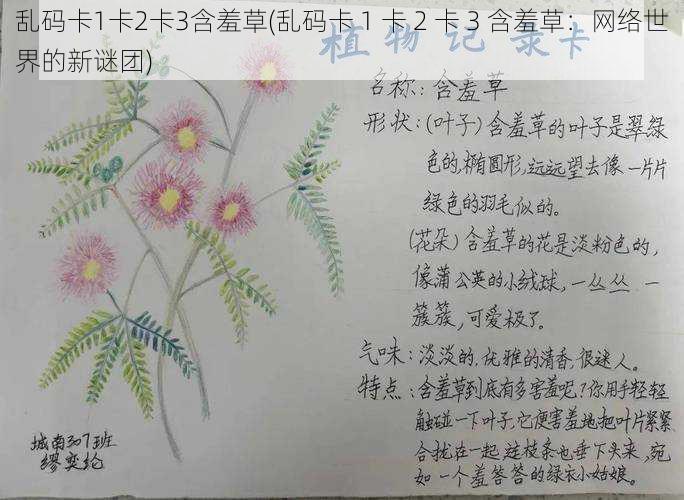 乱码卡1卡2卡3含羞草(乱码卡 1 卡 2 卡 3 含羞草：网络世
界的新谜团)
植物记录卡
名称：含羞草
形状：(叶子)含羞草的叶子是翠绿
色的,椭圆形,远远望去像一片片
绿色的羽毛似的。
(花朵)含羞草的花是淡粉色的，
像蒲公英的小绒球，一丛丛.一
簇簇，可爱极了。
气味：淡淡的，优雅的清香，很迷人。
特点：含羞草到底有多害羞呢？你用手轻轻
触碰一下叶子，它便害羞地把叶片紧紧
合拢在一起，连枝条也垂下头来，宛
如一个羞答答的绿衣小姑娘。
城南307班
缪奕纶